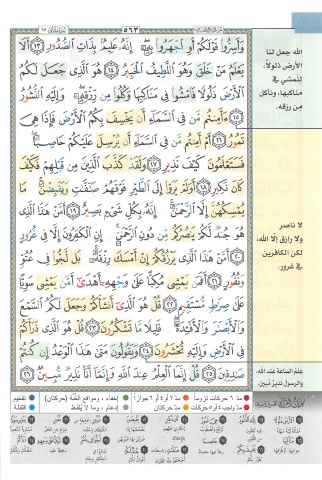 ٥٦٣
وَأَسِرُّوا۟ قَوْلَكُمْ أَوِ ٱجْهَرُوا۟ بِهِۦٓ ۖ إِنَّهُۥ عَلِيمٌۢ بِذَاتِ ٱلصُّدُورِ ١٣ أَلَا
يَعْلَمُ مَنْ خَلَقَ وَهُوَ ٱللَّطِيفُ ٱلْخَبِيرُ ١٤ هُوَ ٱلَّذِى جَعَلَ لَكُمُ
ٱلْأَرْضَ ذَلُولًا فَٱمْشُوا۟ فِى مَنَاكِبِهَا وَكُلُوا۟ مِن رِّزْقِهِۦ ۖ وَإِلَيْهِ ٱلنُّشُورُ
١٥ ءَأَمِنتُم مَّن فِى ٱلسَّمَآءِ أَن يَخْسِفَ بِكُمُ ٱلْأَرْضَ فَإِذَا هِىَ
تَمُورُ ١٦ أَمْ أَمِنتُم مَّن فِى ٱلسَّمَآءِ أَن يُرْسِلَ عَلَيْكُمْ حَاصِبًا ۖ
فَسَتَعْلَمُونَ كَيْفَ نَذِيرِ ١٧ وَلَقَدْ كَذَّبَ ٱلَّذِينَ مِن قَبْلِهِمْ فَكَيْفَ
كَانَ نَكِيرِ ١٨ أَوَلَمْ يَرَوْا۟ إِلَى ٱلطَّيْرِ فَوْقَهُمْ صَٰٓفَّٰتٍ وَيَقْبِضْنَ ۚ مَا
يُمْسِكُهُنَّ إِلَّا ٱلرَّحْمَٰنُ ۚ إِنَّهُۥ بِكُلِّ شَىْءٍۭ بَصِيرٌ ١٩ أَمَّنْ هَٰذَا ٱلَّذِى
هُوَ جُندٌ لَّكُمْ يَنصُرُكُم مِّن دُونِ ٱلرَّحْمَٰنِ ۚ إِنِ ٱلْكَٰفِرُونَ إِلَّا فِى غُرُورٍ
٢٠ أَمَّنْ هَٰذَا ٱلَّذِى يَرْزُقُكُمْ إِنْ أَمْسَكَ رِزْقَهُۥ ۚ بَل لَّجُّوا۟ فِى عُتُوٍّ
وَنُفُورٍ ٢١ أَفَمَن يَمْشِى مُكِبًّا عَلَىٰ وَجْهِهِۦٓ أَهْدَىٰٓ أَمَّن يَمْشِى سَوِيًّا
عَلَىٰ صِرَٰطٍ مُّسْتَقِيمٍ ٢٢ قُلْ هُوَ ٱلَّذِىٓ أَنشَأَكُمْ وَجَعَلَ لَكُمُ ٱلسَّمْعَ
وَٱلْأَبْصَٰرَ وَٱلْأَفْـِٔدَةَ ۖ قَلِيلًا مَّا تَشْكُرُونَ ٢٣ قُلْ هُوَ ٱلَّذِى ذَرَأَكُمْ
فِى ٱلْأَرْضِ وَإِلَيْهِ تُحْشَرُونَ ٢٤ وَيَقُولُونَ مَتَىٰ هَٰذَا ٱلْوَعْدُ إِن كُنتُمْ
صَٰدِقِينَ ٢٥ قُلْ إِنَّمَا ٱلْعِلْمُ عِندَ ٱللَّهِ وَإِنَّمَآ أَنَا۠ نَذِيرٌ مُّبِينٌ ٢٦
الله جعل لنا
الأرض ذلولاً،
لنمشي في
مناكبها، ونأكل
من رزقه.
لا ناصر
ولا رازق إلا الله،
لكن الكافرين
في غرور.
علم الساعة عند الله،
والرسول نذيرٌ مبين.
مدّ ٦ حركات لزوماً مدّ ٢ أو ٤ أو ٦ جوازاً إخفاء، ومواقع الغُنَّة (حركتان) تفخيم
مدّ واجب ٤ أو ٥ حركات مدّ حركتان إدغام، وما لا يُلفَظ قلقلة